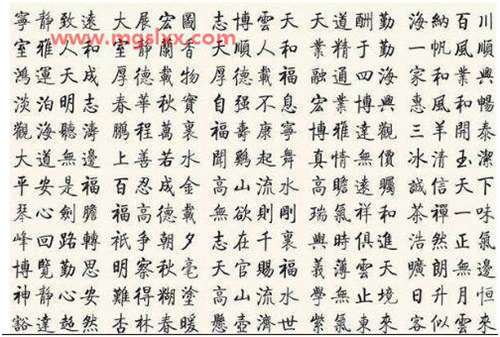 寧靜致遠 大展宏圖 志博雲天 天道酬勤 海納百川
室雅人和 室静蘭香 天順人和 業精于勤 一帆風順
鴻運天成 厚德載物 厚德載福 融通四海 家和業興
淡泊明志 春華秋實 自强不息 宏 博 惠風和暢
觀海聽濤 鵬程萬裏 福壽康寧 博雅達觀 三羊開泰
大道無邊 上善若水 聞鷄起舞 真情無價 冰清玉潔
平安是福 百忍成金 高山流水 高瞻遠矚 誠信天下
琴心劍膽 福高德載 無欲則剛 瑞氣祥和 茶禪一味
峰回路轉 祇争朝夕 志在千裏 與時俱進 浩然正氣
博覽勤思 明察秋毫 天官賜福 義薄雲天 曠朗無邊
神静心安 難得糊塗 高山流水 學無止境 日升月恒
豁達超然 杏林春暖 懸壺濟世 紫氣東來 客似雲來
www.mgslxx.com